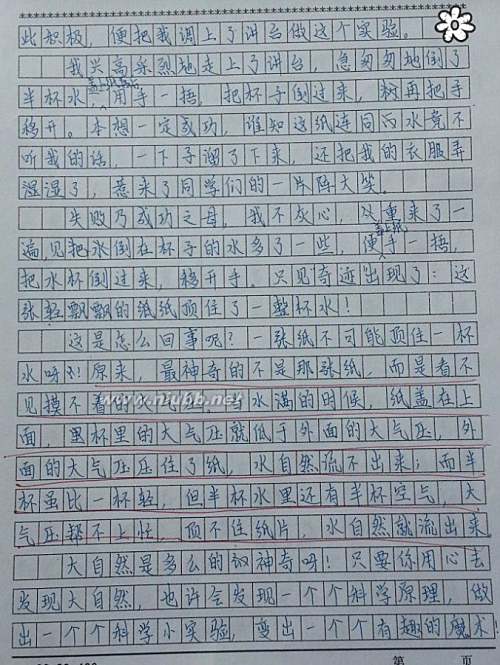 此积极，便把我调上了讲台做这个实验。
我兴高采烈地走上了讲台，急匆匆地倒了
盖上纸后
半杯水，用手一捂，把杯子倒过来，树再把手
移开。本想一定成功，谁知这纸连同水竟不
听我的话，一下子溜了下来，还把我的衣服弄
湿湿了，惹来了同学们的一片阵大笑。
失败乃成功之母，我不灰心，从重来了一
盖上纸
遍，见把水倒在杯子的水多了一些，便手一捂，
把水杯倒过来，移开手。只见奇迹出现了：这
张轻飘飘的纸纸顶住了一整杯水！
这是怎么回事呢？一张纸不可能顶住一杯
水呀！原来，最神奇的不是那张纸，而是看不
见摸不着的大气压，当水满的时候，纸盖在上
面，里杯里的大气压就低于外面的大气压，外
面的大气压压住了纸，水自然流不出来；而半
杯虽比一杯轻，但半杯水里还有半杯空气，大
气压帮不上忙，顶不住纸片，水自然就流出来。
大自然是多么的神奇呀！只要你用心去
发现大自然，也许会发现一个个科学原理，做
出一个个科学小实验，变出一个个有趣的魔术！
www.niubb.net
第 页